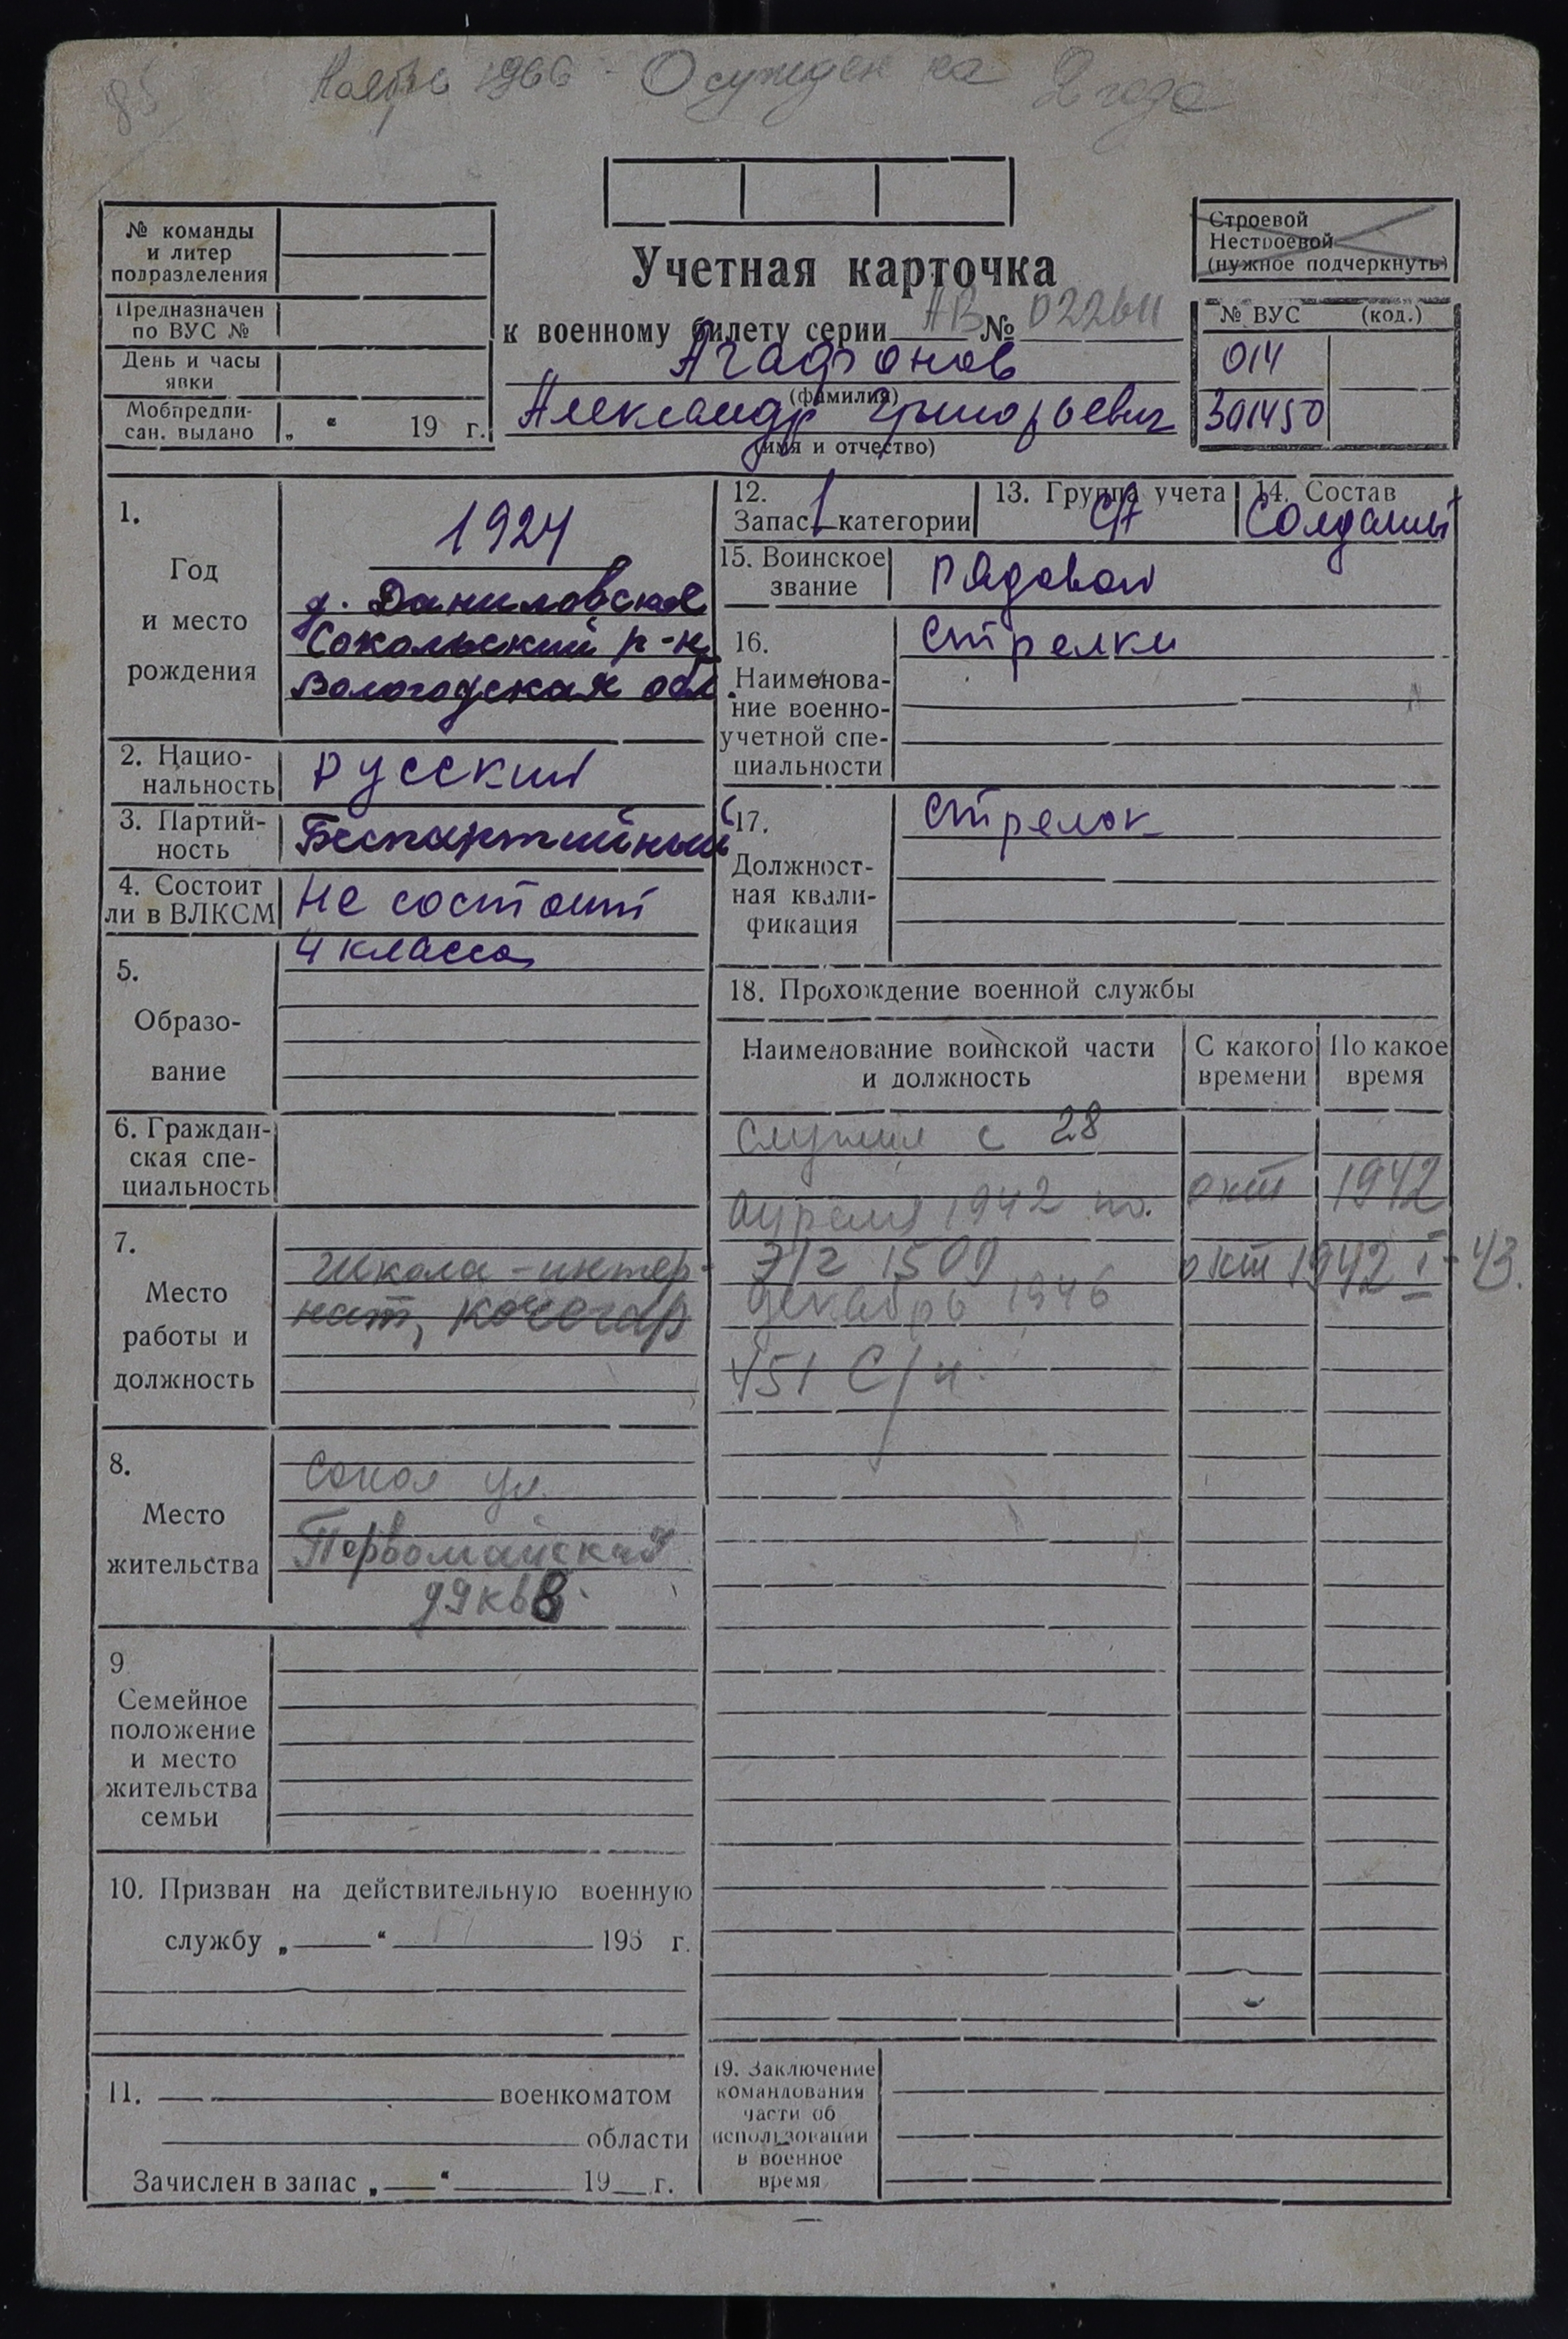 85
Ноябрь 1966 - Осужден на 2 года
№ команды
и литер
подразделения
Предназначен
по ВУС №
День и часы
явки
Мобпредпи-
сан. выдано „ “ 19 г.
Учетная карточка
к военному билету серии АВ № 0226
Агафонов
(фамилия)
Александр Григорьевич
(имя и отчество)
Строевой
Нестроевой
(нужное подчеркнуть)
№ ВУС (код.)
014
301450
1.
Год
и место
рождения
1924
д. Даниловское
Сокольский р-н
Вологодская обл.
2. Нацио-
нальность
Русский
3. Партий-
ность
Беспартийный
4. Состоит
ли в ВЛКСМ
Не состоит
5.
Образо-
вание
4 класса
6. Граждан-
ская спе-
циальность
7.
Место
работы и
должность
школа-интер-
нат, кочегар
8.
Место
жительства
Сокол ул.
Первомайская
д9кв8
9
Семейное
положение
и место
жительства
семьи
10. Призван на действительную военную
службу „ “ 195 г.
11. военкоматом
области
Зачислен в запас „ “ 19 г.
12.
Запас 1 категории
13. Группа учета
СА
14. Состав
Солдаты
15. Воинское
звание
Рядовой
16.
Наименова-
ние военно-
учетной спе-
циальности
Стрелки
17.
Должност-
ная квали-
фикация
Стрелок
18. Прохождение военной службы
Наименование воинской части
и должность
С какого
времени
По какое
время
Служил с 28
апреля 1942 по. окт 1942
э/г 1509 окт 1942 I-43.
декабрь 1946
451 С/п.
19. Заключение
командования
части об
использовании
в военное
время